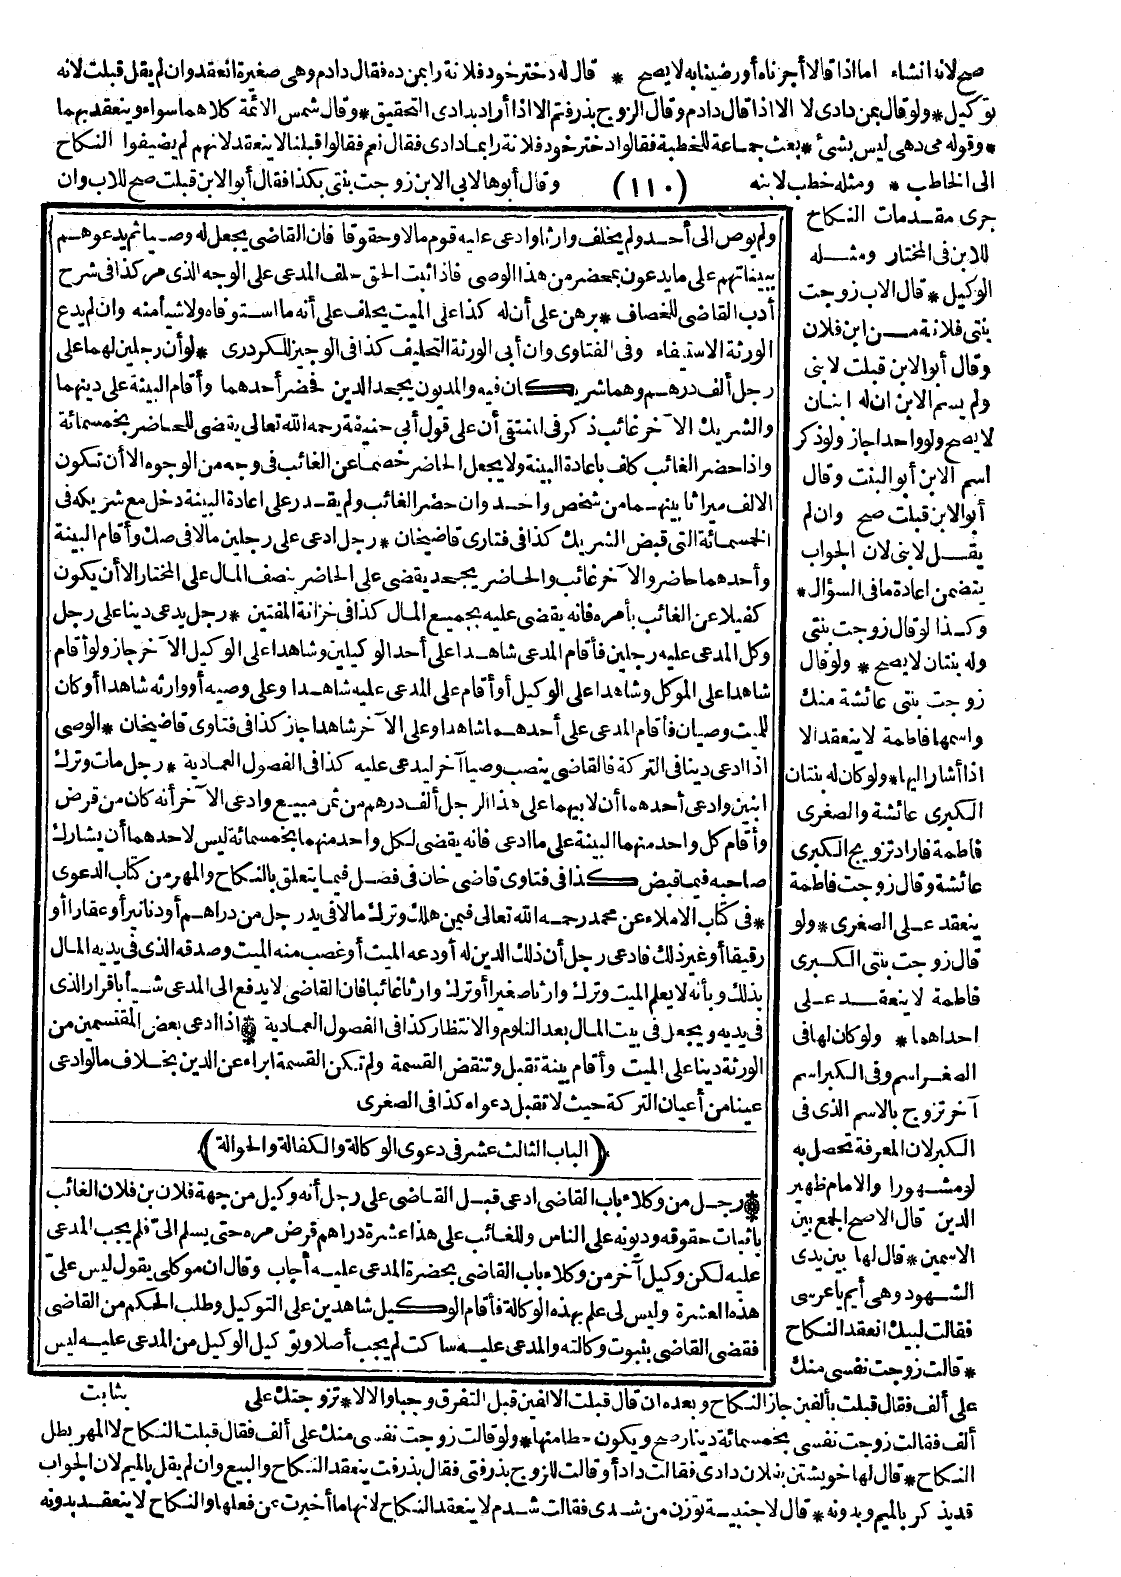 صح لانه انشاء اما اذا قالا أجرناه أو رضينا به لا يصح * قال له دختر خود فلانة را بمن ده فقال دادم وهى صغيرة انعقد وان لم يقل قبلت لانه
توكيل * ولو قال بمن دادى لا الا اذا قال دادم وقال الزوج بذرفتم الا اذا أراد بدادى التحقيق * وقال شمس الائمة كلاهما سواء وينعقد بهما
* وقوله مى دهى ليس بشئ * بعث جماعة للخطبة فقالوا دختر خود فلانة را بما دادى فقال نعم فقالوا قبلنا لا ينعقد لانهم لم يضيفوا النكاح
الى الخاطب * ومثله خطب لابنه (١١٠) وقال أبوها لابى الابن زوجت بنتى بكذا فقال أبو الابن قبلت صح للاب وان
جرى مقدمات النكاح
للابن فى المختار ومثله
الوكيل * قال الاب زوجت
بنتى فلانة من ابن فلان
وقال أبو الابن قبلت لابنى
ولم يسم الابن ان له ابنان
لا يصح ولو واحدا جاز ولو ذكر
اسم الابن أبو البنت وقال
أبو الابن قبلت صح وان لم
يقل لابنى لان الجواب
يتضمن اعادة ما فى السؤال *
وكذا لو قال زوجت بنتى
وله بنتان لا يصح * ولو قال
زوجت بنتى عائشة منك
واسمها فاطمة لا ينعقد الا
اذا أشار اليها * ولو كان له بنتان
الكبرى عائشة والصغرى
فاطمة فاراد تزويج الكبرى
عائشة وقال زوجت فاطمة
ينعقد على الصغرى * ولو
قال زوجت بنتى الكبرى
فاطمة لا ينعقد على
احداهما * ولو كان لها فى
الصغر اسم وفى الكبر اسم
آخر تزوج بالاسم الذى فى
الكبر لان المعرفة تحصل به
لو مشهورا والامام ظهير
الدين قال الاصح الجمع بين
الاسمين * قال لها بين يدى
الشهود وهى أيم يا عرسى
فقالت لبيك انعقد النكاح
* قالت زوجت نفسى منك
ولم يوص الى أحد ولم يخلف وارثا وادعى عليه قوم مالا وحقوقا فان القاضى يجعل له وصيا ثم يدعوهم
ببيناتهم على ما يدعون بمحضر من هذا الوصى فاذا ثبت الحق حلف المدعى على الوجه الذى مر كذا فى شرح
أدب القاضى للخصاف * برهن على أن له كذا على الميت يحلف على أنه ما استوفاه ولا شيأ منه وان لم يدع
الورثة الاستيفاء وفى الفتاوى وان أبى الورثة التحليف كذا فى الوجيز للكردرى * لو أن رجلين لهما على
رجل ألف درهم وهما شريكان فيه والمديون يجحد الدين فحضر أحدهما وأقام البينة على دينهما
والشريك الآخر غائب ذكر فى المنتقى أن على قول أبى حنيفة رحمه الله تعالى يقضى للحاضر بخمسمائة
واذا حضر الغائب كلف باعادة البينة ولا يجعل الحاضر خصما عن الغائب فى وجه من الوجوه الا أن تكون
الالف ميراثا بينهما من شخص واحد وان حضر الغائب ولم يقدر على اعادة البينة دخل مع شريكه فى
الخمسمائة التى قبض الشريك كذا فى فتاوى قاضيخان * رجل ادعى على رجلين مالا فى صك وأقام البينة
وأحدهما حاضر والآخر غائب والحاضر يجحد يقضى على الحاضر بنصف المال على المختار الا أن يكون
كفيلا عن الغائب بأمره فانه يقضى عليه بجميع المال كذا فى خزانة المفتين * رجل يدعى دينا على رجل
وكل المدعى عليه رجلين فأقام المدعى شاهدا على أحد الوكيلين وشاهدا على الوكيل الآخر جاز ولو أقام
شاهدا على الموكل وشاهدا على الوكيل أو أقام على المدعى عليه شاهدا وعلى وصيه أو وارثه شاهدا أو كان
للميت وصيان فأقام المدعى على أحدهما شاهدا وعلى الآخر شاهدا جاز كذا فى فتاوى قاضيخان * الوصى
اذا ادعى دينا فى التركة فالقاضى ينصب وصيا آخر ليدعى عليه كذا فى الفصول العمادية * رجل مات وترك
ابنين وادعى أحدهما أن لابيهما على هذا الرجل ألف درهم من ثمن مبيع وادعى الآخر أنه كان من قرض
وأقام كل واحد منهما البينة على ما ادعى فانه يقضى لكل واحد منهما بخمسمائة ليس لاحدهما أن يشارك
صاحبه فيما قبض كذا فى فتاوى قاضى خان فى فصل فيما يتعلق بالنكاح والمهر من كتاب الدعوى
* فى كتاب الاملاء عن محمد رحمه الله تعالى فيمن هلك وترك مالا فى يد رجل من دراهم أو دنانير أو عقارا أو
رقيقا أو غير ذلك فادعى رجل أن ذلك الدين له أودعه الميت أو غصب منه الميت وصدقه الذى فى يديه المال
بذلك وبأنه لا يعلم الميت وترك وارثا صغيرا أو ترك وارثا غائبا فان القاضى لا يدفع الى المدعى شيأ باقرار الذى
فى يديه ويجعل فى بيت المال بعد التلوم والانتظار كذا فى الفصول العمادية * اذا ادعى بعض المقتسمين من
الورثة دينا على الميت وأقام بينة تقبل وتنقض القسمة ولم تكن القسمة ابراء عن الدين بخلاف ما لو ادعى
عينا من أعيان التركة حيث لا تقبل دعواه كذا فى الصغرى
(الباب الثالث عشر فى دعوى الوكالة والكفالة والحوالة)
* رجل من وكلاء باب القاضى ادعى قبل القاضى على رجل أنه وكيل من جهة فلان بن فلان الغائب
باثبات حقوقه وديونه على الناس وللغائب على هذا عشرة دراهم قرض مره حتى يسلم الى فلم يجب المدعى
عليه لكن وكيل آخر من وكلاء باب القاضى بحضرة المدعى عليه أجاب وقال ان موكلى يقول ليس على
هذه العشرة وليس لى علم بهذه الوكالة فأقام الوكيل شاهدين على التوكيل وطلب الحكم من القاضى
فقضى القاضى بثبوت وكالته والمدعى عليه ساكت لم يجب أصلا وتوكيل الوكيل من المدعى عليه ليس
بثابت
على ألف فقال قبلت بألفين جاز النكاح وبعده ان قال قبلت الالفين قبل التفرق وجبا والا لا * تزوجتك على
ألف فقالت زوجت نفسى بخمسمائة دينار صح ويكون حطا منها * ولو قالت زوجت نفسى منك على ألف فقال قبلت النكاح لا المهر بطل
النكاح * قال لها خويشتن بفلان دادى فقالت داد أو قالت للزوج بذرفتى فقال بذرفت ينعقد النكاح والبيع وان لم يقل بالميم لان الجواب
قد يذكر بالميم وبدونه * قال لاجنبية تو زن من شدى فقالت شدم لا ينعقد النكاح لانها ما أخبرت عن فعلها والنكاح لا ينعقد بدونه